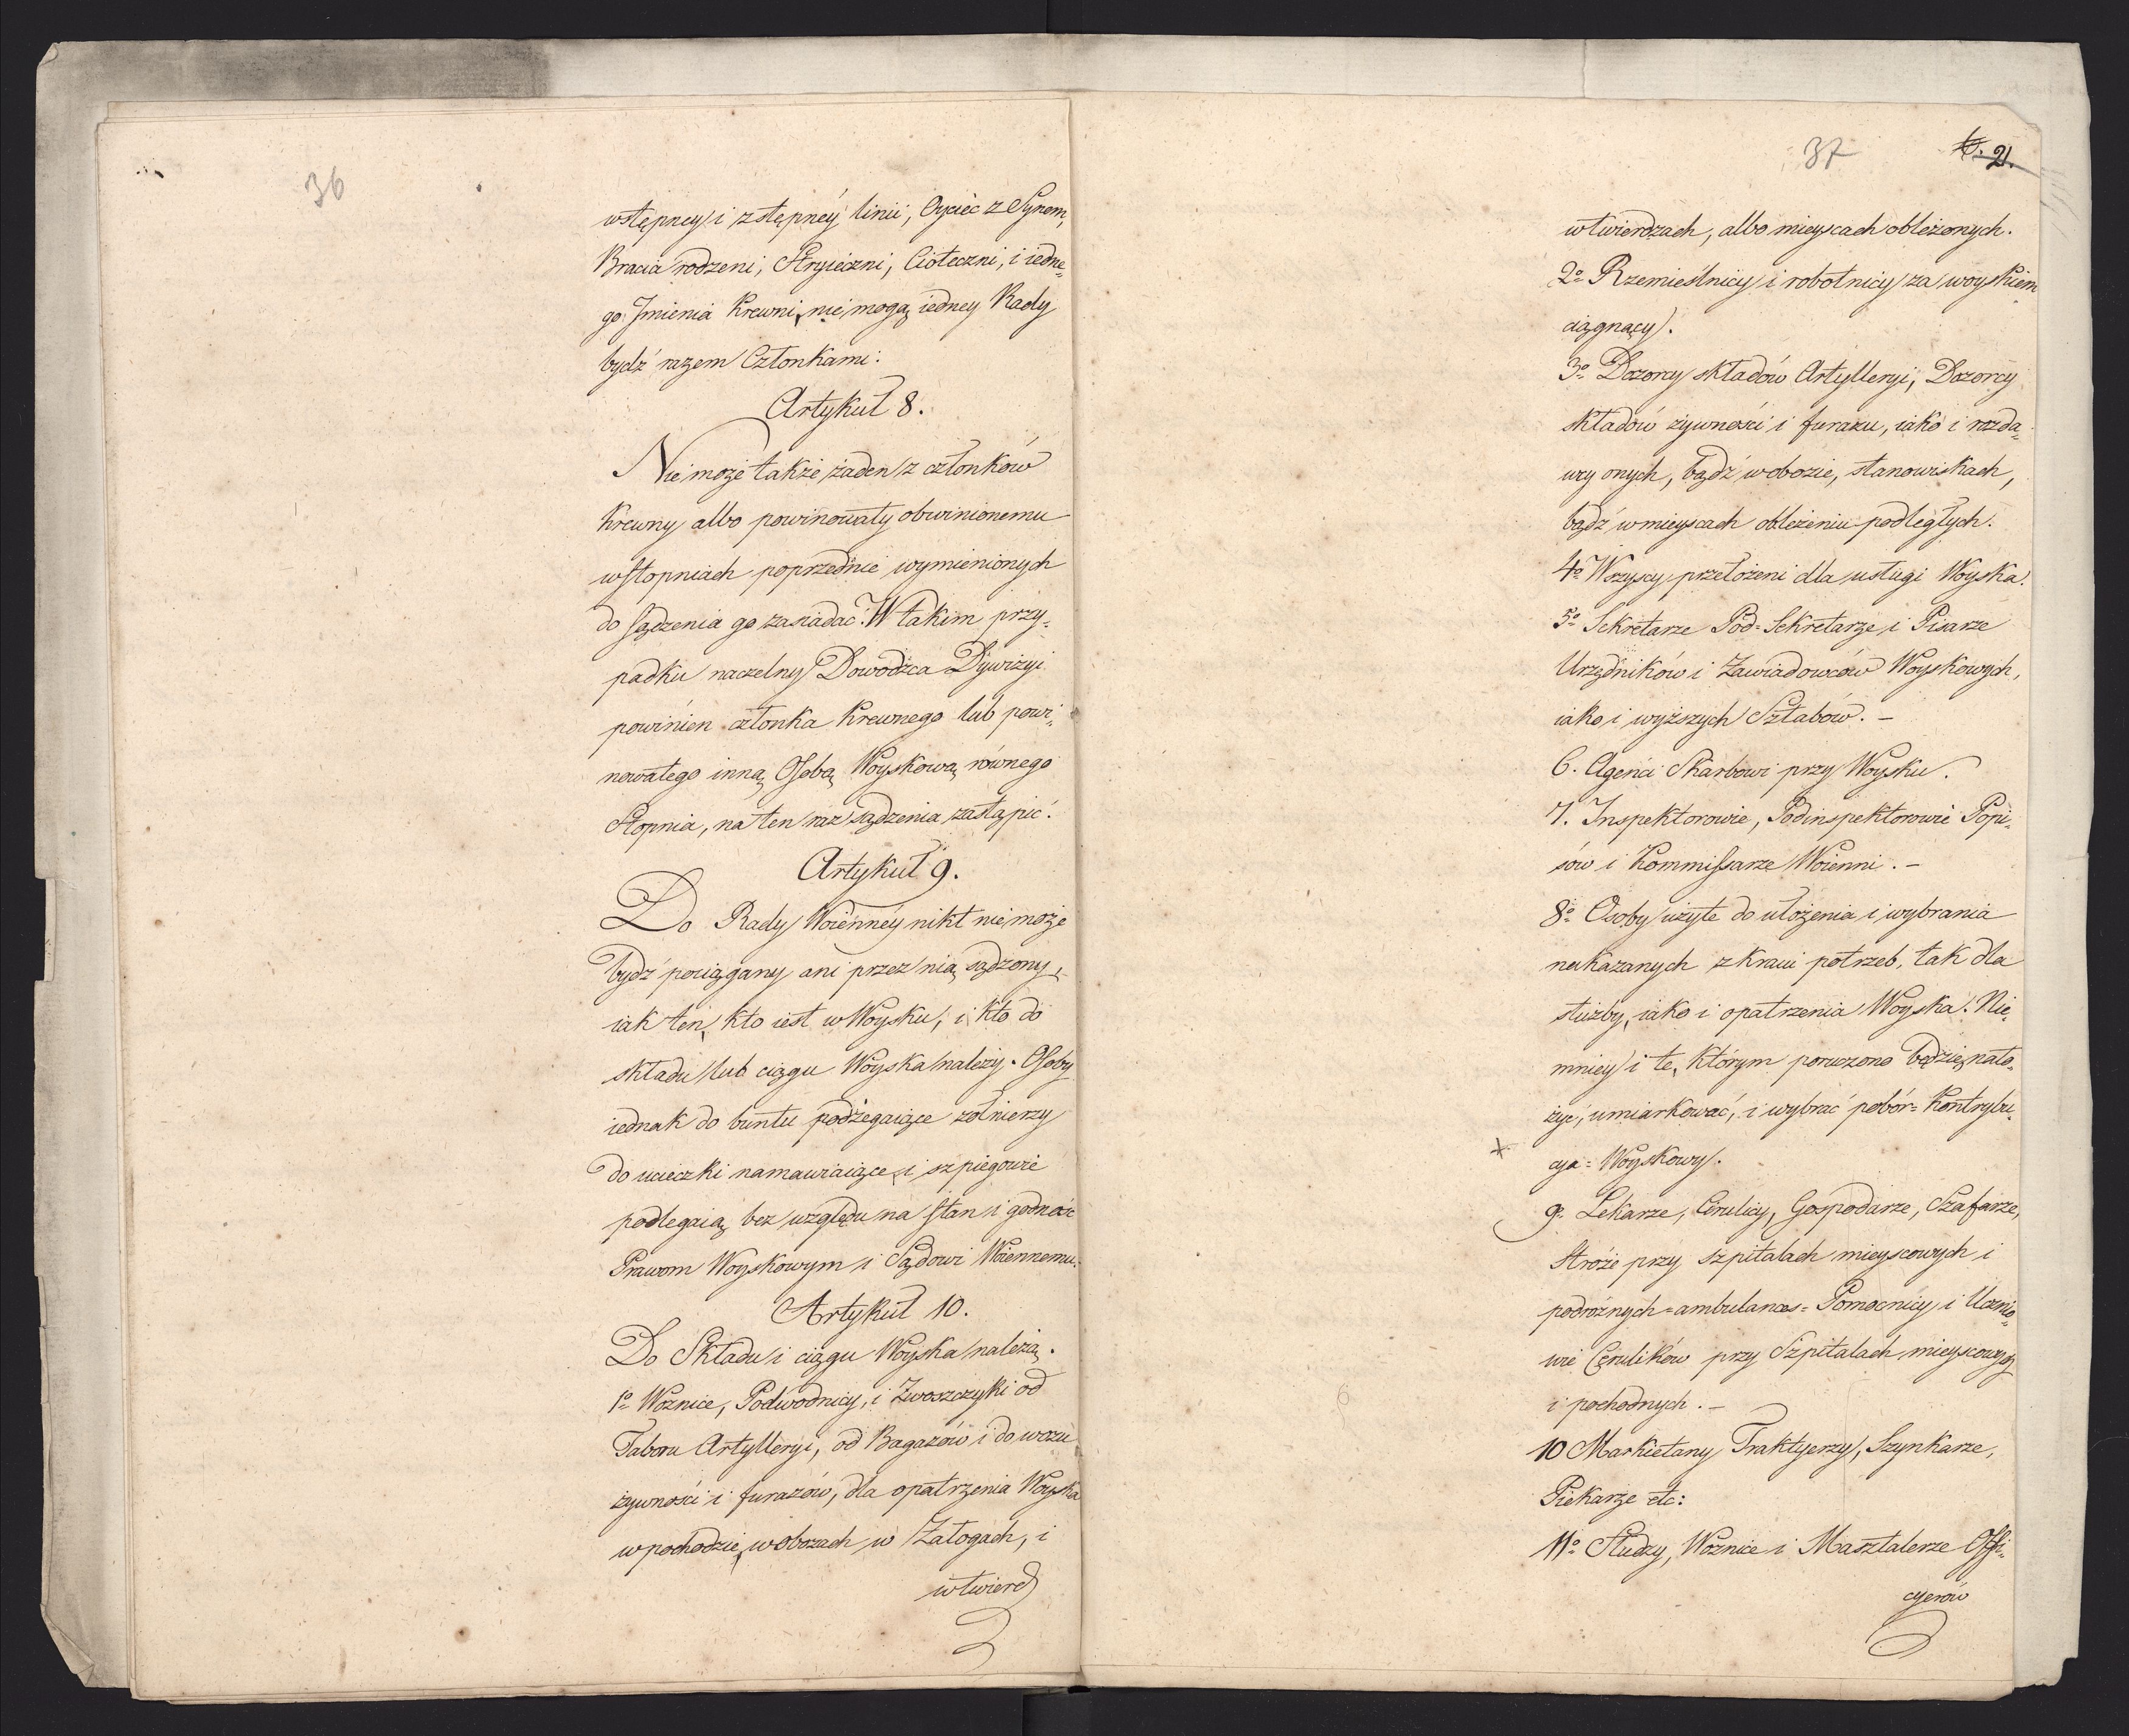 36
wstępney i zstępney linii, Oyciec z Synem,
Bracia rodzeni, Stryieczni, Cioteczni, i iedne=
go Jmienia Krewni, nie mogą iedney Rady
bydź razem Członkami.
Artykuł 8.
Nie może także żaden z członków
Krewny albo powinowaty obwinionemu
w stopniach poprzednie wymienionych
do sądzenia go zasiadać. W takim przy=
padku naczelny Dowodzca Dywizyi
powinien członka Krewnego lub powi=
nowatego inną Osobą Woyskową równego
Stopnia, na ten raz sądzenia zastąpić.
Artykuł 9.
Do Rady Woienney nikt nie może
bydź pociągany ani przez nią sądzony,
iak ten, kto iest w Woysku, i kto do
składu lub ciągu Woyska należy. Osoby
iednak do buntu podżegaiące żołnierzy
do ucieczki namawiaiące, i szpiegowie
podlegaią bez względu na stan i godność
Prawom Woyskowym i Sądowi Woiennemu.
Artykuł 10.
Do Składu i ciągu Woyska należą.
1º Woznice, Podwodnicy, i Zwoszczyki od
Taboru Artylleryi, od Bagażów i do wozu
żywności i furażów, dla opatrzenia Woyska
w pochodzie, w obozach, w Załogach, i
w twierd
37
21.
w twierdzach, albo mieyscach oblężonych.
2º Rzemieślnicy i robotnicy za woyskiem
ciągnący.
3º Dozorcy składów Artylleryi, Dozorcy
składów żywności i furażu, iako i rozda=
wcy onych, bądź w obozie, stanowiskach,
bądź w mieyscach oblężeniu podległych.
4º Wszyscy przełożeni dla usługi Woyska.
5º Sekretarze Pod=Sekretarze i Pisarze
Urzędników i Zawiadowców Woyskowych,
iako i wyższych Sztabów. –
6. Agenci Skarbowi przy Woysku.
7. Inspektorowie, Podinspektorowie Popi=
sów i Kommissarze Woienni. –
8º Osoby użyte do ułożenia i wybrania
nakazanych z kraiu potrzeb, tak dla
służby, iako i opatrzenia Woyska. Nie=
mniey i te, którym poruczono będzie nało=
życ, umiarkować, i wybrać pobór= Kontrybu=
cya = Woyskowy.
9º Lekarze, Cerulicy, Gospodarze, Szafarze,
Stróże przy szpitalach mieyscowych i
podróżnych =ambulances= Pomocnicy i Ucznio=
wie Cerulików przy Szpitalach mieyscowych
i pochodnych. –
10 Markietany Traktyerzy, Szynkarze,
Piekarze etc:
11º Słudzy, Woznice i Masztalerze Offi=
cyerów